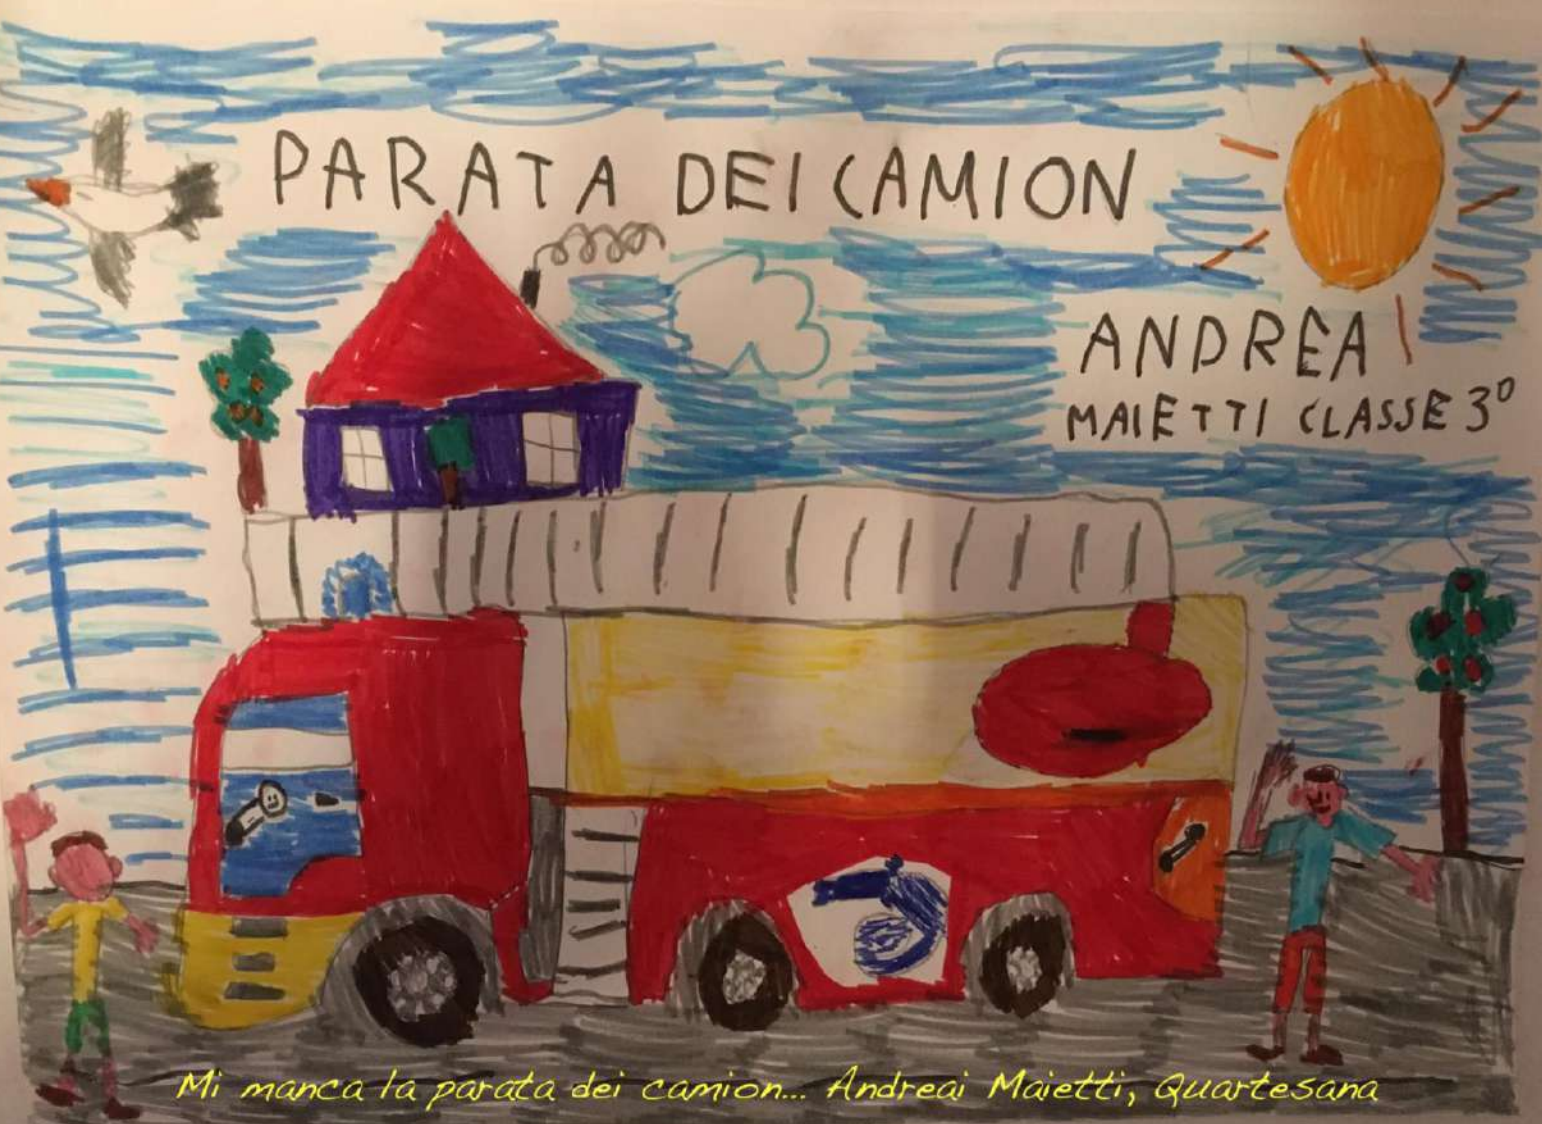 PARATA DEI CAMION
ANDREA
MAIETTI CLASSE 3º
Mi manca la parata dei camion... Andreai Maietti, Quartesana